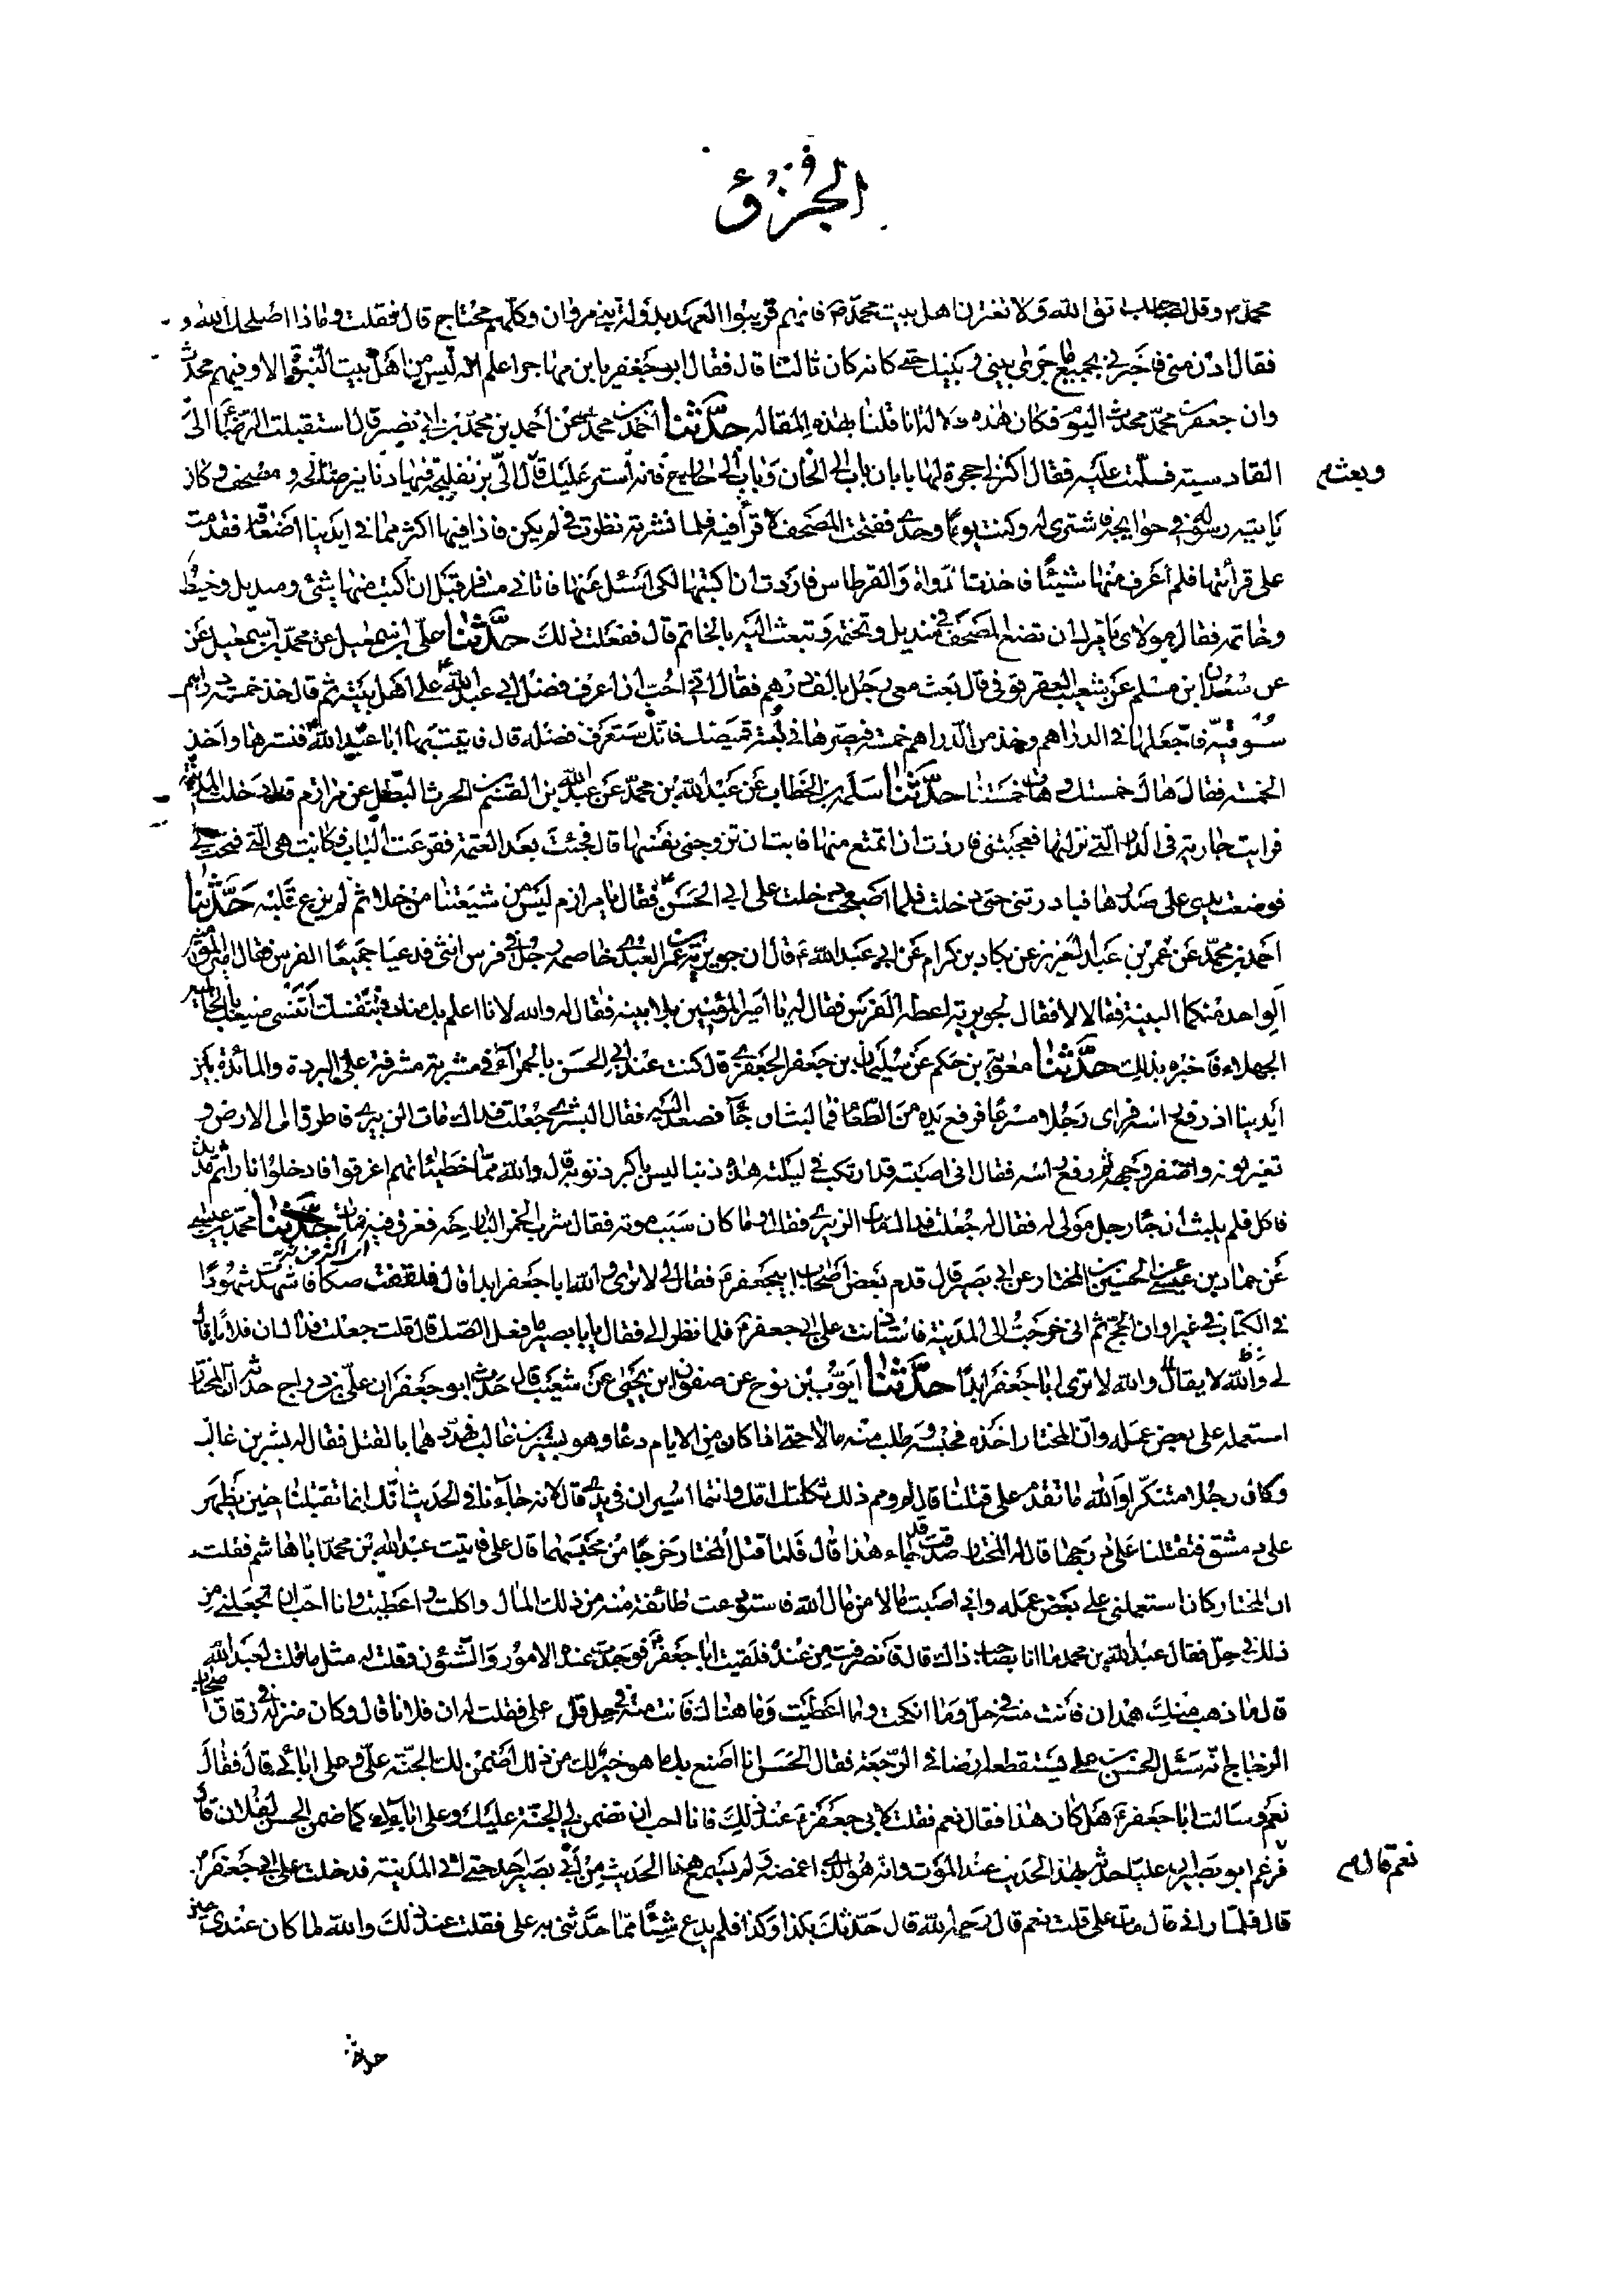 الجزؤ
محمد م وقل لصاحبك اتق الله ولا تغترن اهل بيت محمد ص فانهم قريبوا العهد بدولة بني مروان وكلهم محتاج قال فقلت وماذا اصلحك الله و
فقال ادن مني فاخبرني بجميع ما جرى بيني وبينك حتى كانه كان ثالثنا قال فقال ابو جعفر يا بن مهاجر اعلم انه ليس من اهل بيت النبوة الا وفيهم محدث
وان جعفر بن محمد محدثنا اليوم فكان هذه دلالة انا قلنا بهذه المقاله حدثنا احمد بن محمد عن احمد بن محمد بن ابي نصير قال استقبلت الرضا ع الى
القادسيته فسلمت عليه فقال اكتر لي حجرة لها بابان باب الى الخان وباب الى خارج فانه استر عليك قال الي بزنفليجة فيها دنانير صالحه و مصحف وكان
وبعث م
يأتيه رسوله في حوايجه فاشتري له وكنت يوما وحدي ففتحت المصحف لاقرأ فيه فلما نشرته نظرت في لم يكن فاذا فيها اكثر مما في ايدينا اضعافه فقدمت
على قرائتها فلم اعرف منها شيئا فاخذت الدواة والقرطاس فاردت ان اكتبها لكي اسئل عنها فاتاني مسافر قبل ان اكتب منها بشئ ومنديل وخيط
وخاتمه فقال مولاي يأمرك ان تضع المصحف في منديل وتختمه وتبعث اليه بالخاتم قال ففعلت ذلك حدثنا علي بن اسمعيل عن محمد بن اسمعيل عن
عن سعدان ابن مسلم عن شعيب العقرقوفي قال بعث معي رجل بالف درهم فقال اني احب ان اعرف فضل ابي عبد الله ع على اهل بيته ثم قال خذ خمسة دراهم
ستوقيه فاجعلها في الدراهم وخذ من الدراهم خمسة فصيرها في لبنة قميصك فانك ستعرف فضله قال فاتيت بها ابا عبد الله ع فنثرها واخذ
الخمسه فقال هاك خمستك وهات خمستنا حدثنا سلمه بن الخطاب عن عبد الله بن محمد عن عبد الله بن القسم بن الحرث البطل عن مرازم قال دخلت المدينة
فرايت جارية في الدار التي نزلتها فعجبتني فاردت ان اتمتع منها فابت ان تزوجني نفسها قال فجئت بعد العتمة فقرعت الباب فكانت هي التي فتحت لي
فوضعت يدي على صدرها فبادرتني حتى دخلت فلما اصبحت دخلت على ابي الحسن ع فقال يا مرازم ليس من شيعتنا من خلا ثم لم يرع قلبه حدثنا
احمد بن محمد عن عمر بن عبد العزيز عن بكار بن كرام عن ابي عبد الله ع قال ان جويرية بن عمر العبدي خاصمه رجل في فرس انثى فدعيا جميعا الفرس فقال امير المؤمنين
الواحد منكما البينة فقالا لا فقال لجويرية اعطه الفرس فقال له يا امير المؤمنين بلا بينه فقال له والله لانا اعلم بك منك بنفسك اتنسى صنيعك بالجاهلية
الجهلاء فاخبره بذلك حدثنا معوية بن حكم عن سليمان بن جعفر الجعفري قال كنت عند ابي الحسن بالحمراء في مشربة مشرفة على البردة والمائدة بين
ايدينا اذ رفع راسه فراى رجلا مسرعا فرفع يده من الطعام فما لبث ان جاء فصعد اليه فقال البشرى جعلت فداك مات الزبيري فاطرق الى الارض و
تغير لونه واصفر وجهه ثم رفع راسه فقال اني اصبته قد ارتكب في ليلته هذه ذنبا ليس باكبر ذنوبه قال والله مما خطيئاتهم اغرقوا فادخلوا نارا ثم مد يده
فاكل فلم يلبث ان جاء رجل مولى له فقال له جعلت فداك مات الزبيري فقال وما كان سبب موته فقال شرب الخمر البارحه فغرق فيه فمات حدثنا محمد بن عيسى
عن حماد بن عيسى عن الحسين بن المختار عن ابي بصير قال قدم بعض اصحاب ابي جعفر ع فقال لي لا ترى والله ابا جعفر ابدا قال فلقفت صكا فاشهدت شهودا
في الكتاب في غير اوان الحج ثم اني خرجت الى المدينة فاستاذنت على ابي جعفر ع فلما نظر الي فقال يا ابا بصير ما فعل الصك قال قلت جعلت فداك ان فلانا قال
لي والله لا يقال والله لا ترى ابا جعفر ابدا حدثنا ايوب بن نوح عن صفوان ابن يحيى عن شعيب قال حدث ابو جعفر ان علي بن دراج حدثه ان المختار
استعمله على بعض عمله وان المختار اخذه فحبسه وطلب منه مالا حتى اذا كان من الايام دعاه وهو بشر بن غالب فهددهما بالقتل فقال له بشر بن غالب
وكان رجلا متنكرا والله ما تقدر على قتلنا قال له ومم ذلك ثكلتك امك وانتما اسيران في يدي قال لانه جاءنا في الحديث انك انما تقتلنا حين تظهر
على دمشق فتقتلنا على درجها قال له المختار صدقت قد جاء هذا قال فلما قتل المختار خرجا من محبسهما قال علي فاتيت عبد الله بن محمد ابا هاشم فقلت
ان المختار كان استعملني على بعض عمله واني اصبت مالا من مال الله فاستودعت طائفة منه من ذلك المال واكلت واعطيت وانا احب ان تجعلني من
ذلك في حل فقال عبد الله بن محمد ما انا بصاحب ذاك قال فانصرفت من عنده فلقيت ابا جعفر ع فوجدت عنده الامور والشئون فقلت له مثل ما قلت لعبد الله
قال ما ذهب منك همدان فانت منه في حل وما انكحت وما اعطيت وما هنالك فانت منه في حل قال علي فقلت له ان فلانا قال وكان منزله في زقاق اصحاب
الزجاج انه سئل الحسن بن علي يستقطعه ارضا في الرجعة فقال الحسن انا اصنع بك ما هو خير لك من ذلك اضمن لك الجنة علي وعلى ابائي قال فقال
نعم وسالت ابا جعفر ع هل كان هذا فقال نعم فقلت لابي جعفر ع عند ذلك فانا احب ان تضمن لي الجنة عليك وعلى ابائك كما ضمن الحسن لفلان قال
نعم قال م
فزعم ابو بصير ان عليا حدثه بهذا الحديث عند الموت وانه هو الذي اغمضه ولم يسمع هذا الحديث من ابي بصير احد حتى اتى المدينة فدخلت على ابي جعفر م
قال فلما راني قال مات علي قلت نعم قال رحمه الله قال حدثك بكذا وكذا فلم يدع شيئا مما حدثني به علي فقلت عند ذلك والله لما كان عندي حين
حدثني